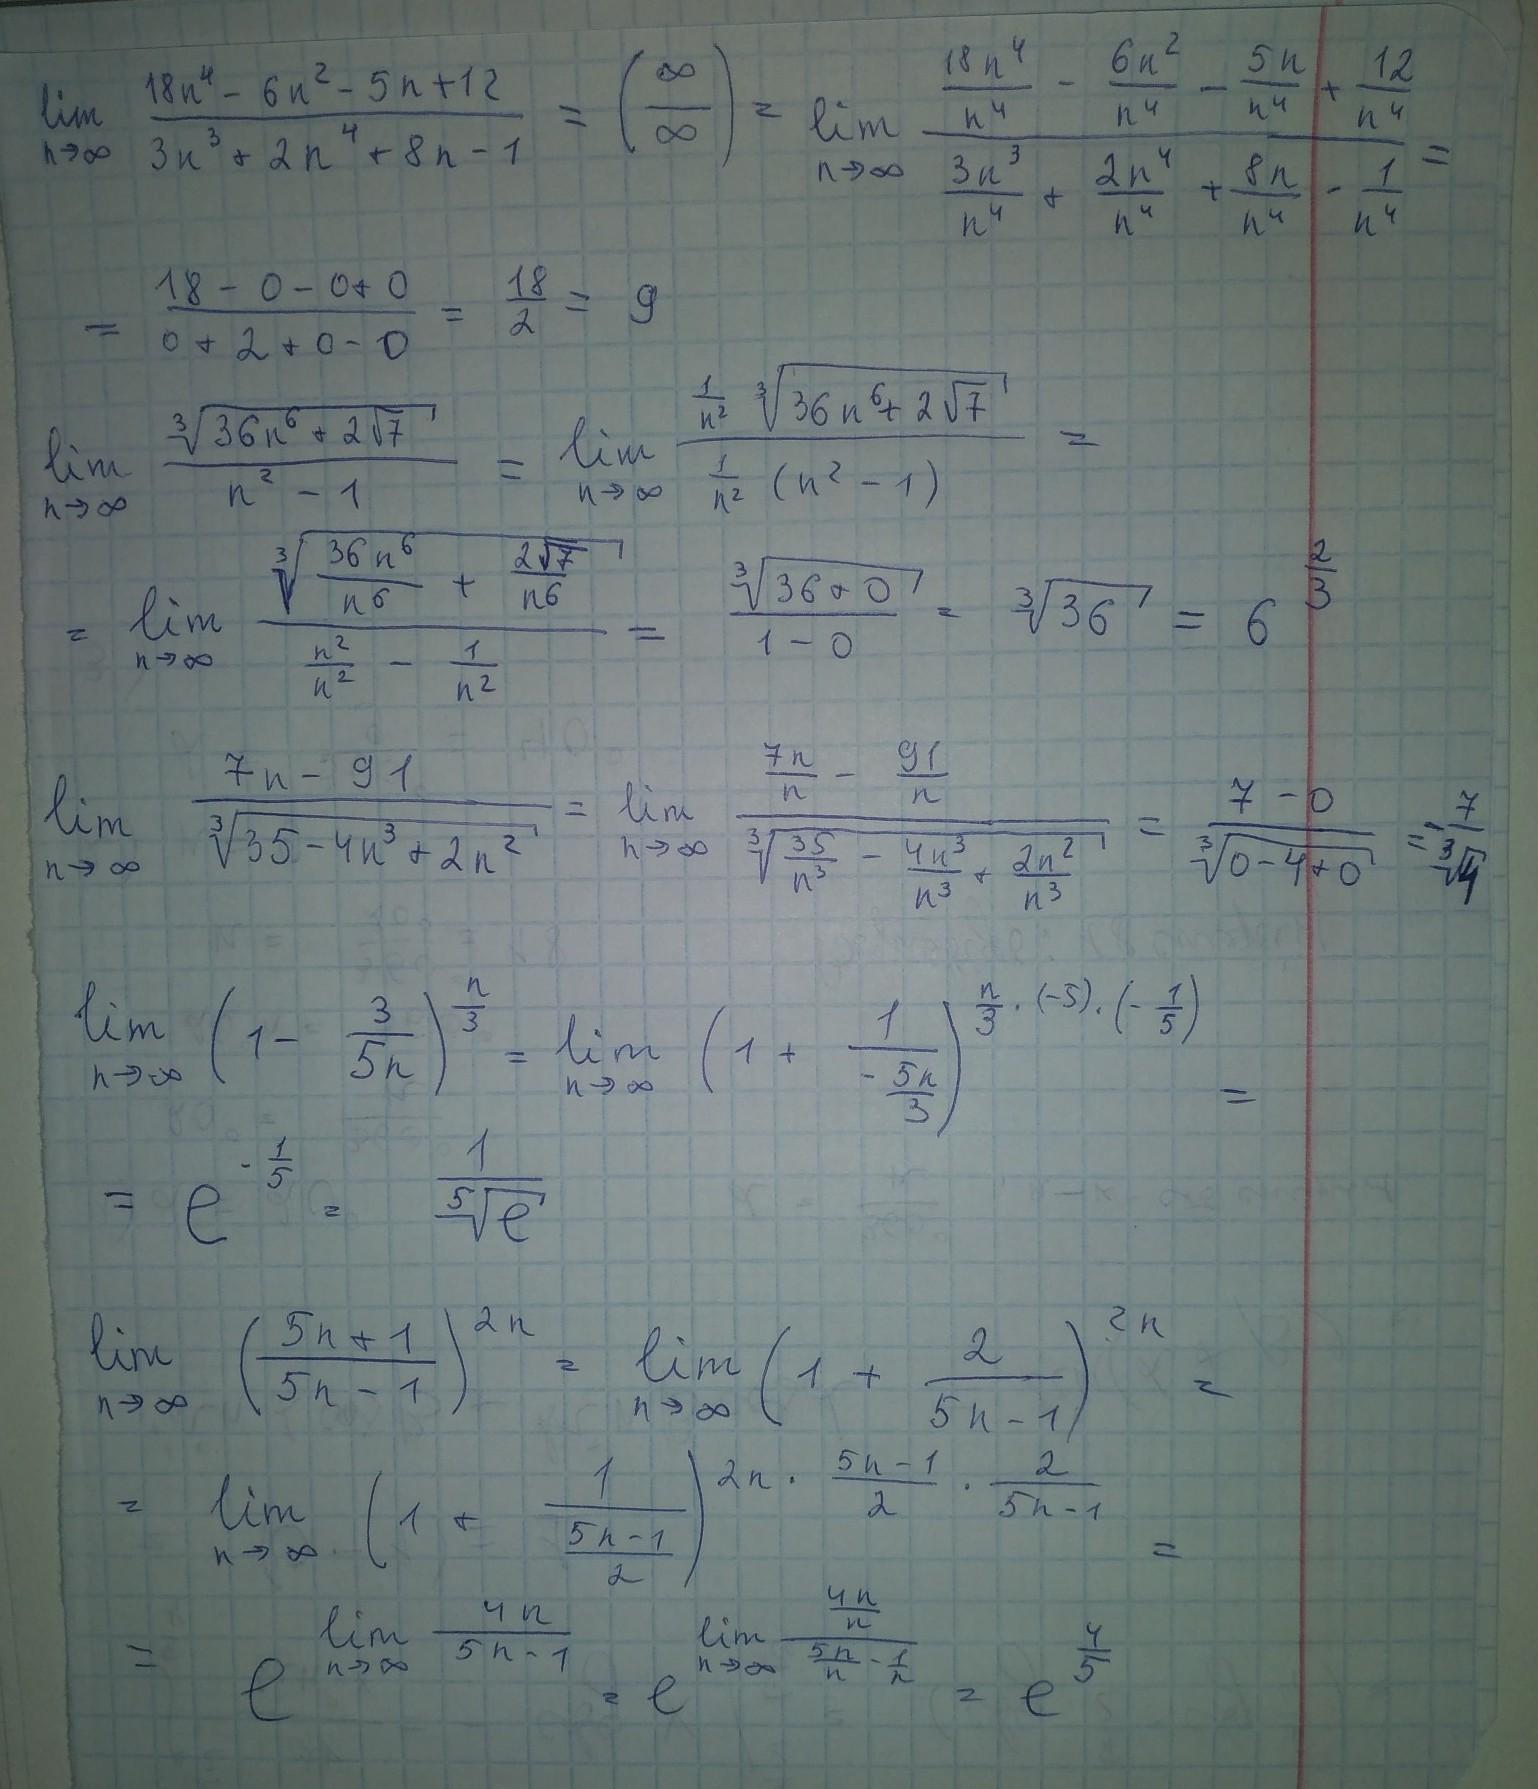 lim n→∞ (18n⁴ - 6n² - 5n + 12)/(3n³ + 2n⁴ + 8n - 1) = (∞/∞) = lim n→∞ (18n⁴/n⁴ - 6n²/n⁴ - 5n/n⁴ + 12/n⁴)/(3n³/n⁴ + 2n⁴/n⁴ + 8n/n⁴ - 1/n⁴) =
= (18 - 0 - 0 + 0)/(0 + 2 + 0 - 0) = 18/2 = 9
lim n→∞ ∛(36n⁶ + 2√7)/(n² - 1) = lim n→∞ (1/n² ∛(36n⁶ + 2√7))/(1/n² (n² - 1)) =
= lim n→∞ ∛(36n⁶/n⁶ + 2√7/n⁶)/(n²/n² - 1/n²) = ∛(36 + 0)/(1 - 0) = ∛36 = 6^(2/3)
lim n→∞ (7n - 91)/∛(35 - 4n³ + 2n²) = lim n→∞ (7n/n - 91/n)/∛(35/n³ - 4n³/n³ + 2n²/n³) = (7 - 0)/∛(0 - 4 + 0) = -7/∛4
lim n→∞ (1 - 3/5n)^(n/3) = lim n→∞ (1 + 1/(-5n/3))^(n/3 · (-5) · (-1/5)) =
= e^(-1/5) = 1/⁵√e
lim n→∞ ((5n + 1)/(5n - 1))^(2n) = lim n→∞ (1 + 2/(5n - 1))^(2n) =
= lim n→∞ (1 + 1/((5n - 1)/2))^(2n · (5n - 1)/2 · 2/(5n - 1)) =
= e^(lim n→∞ 4n/(5n - 1)) = e^(lim n→∞ (4n/n)/(5n/n - 1/n)) = e^(4/5)